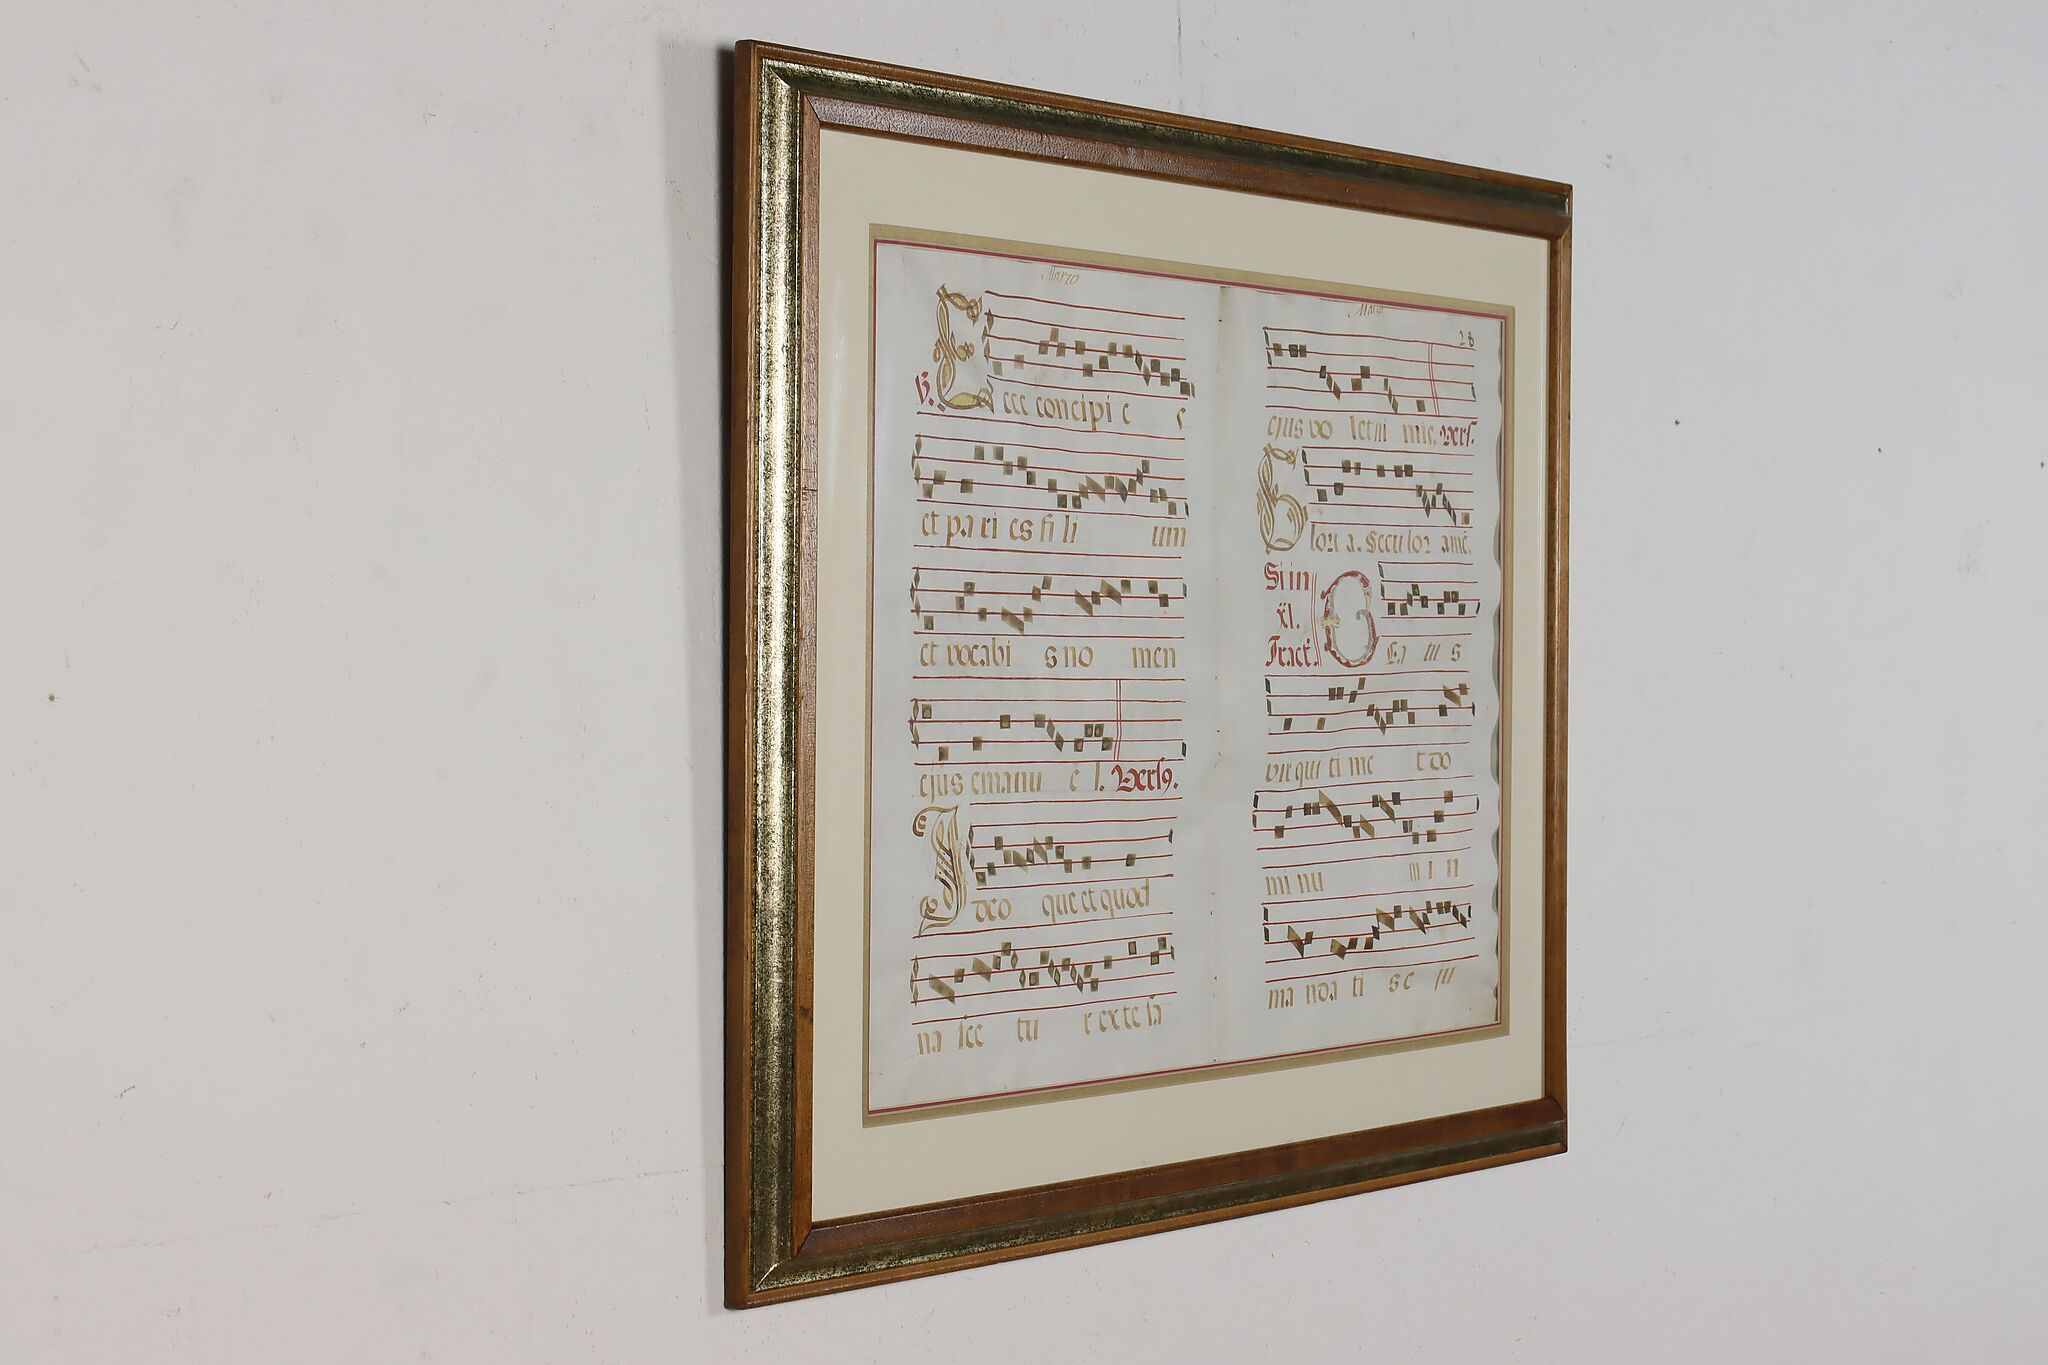 Marzo
℣. Ecce concipi e s
et pa ri es fi li um
et vocabi s no men
ejus emanu e l. Vers9.
Ideo que et quod
na sce tu r ex te sa
Marzo
28
ejus vo let ni mis. Vers.
Glori a. Seculor amē.
Si in
xl.
Tract. BEa tus
vir qui ti me t do
mi nu m i n
man da ti s e ju